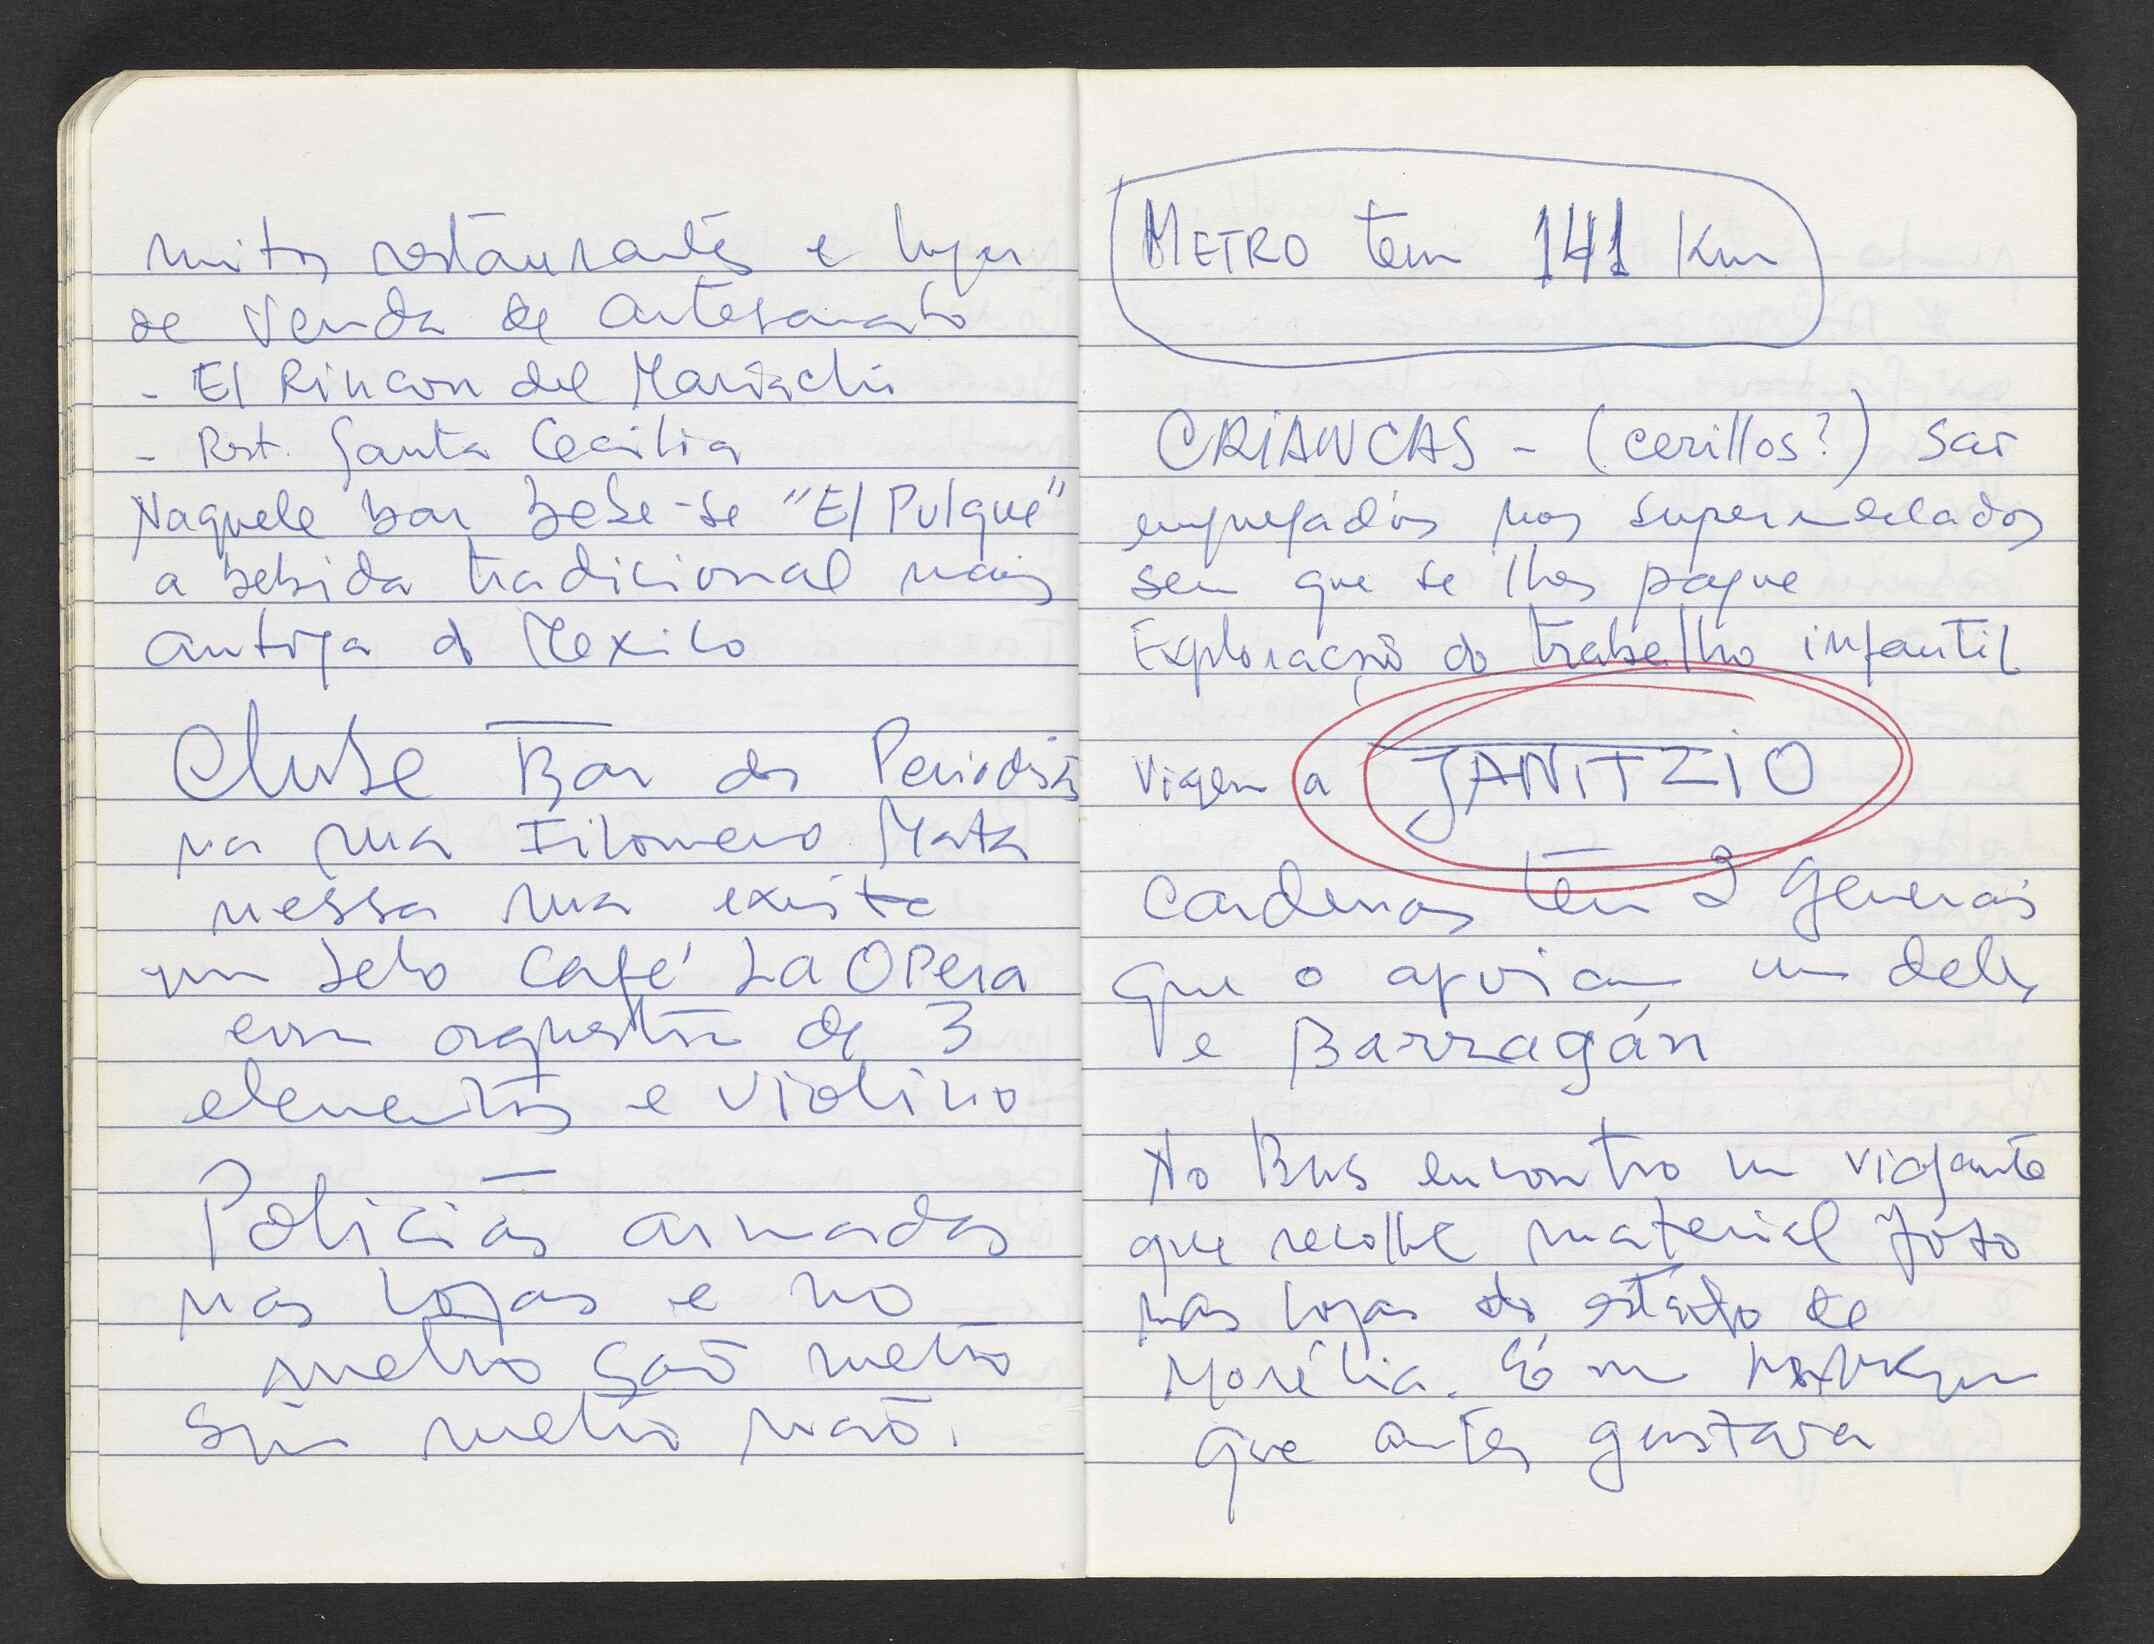 muitos restaurantes e lugar
de venda de artesanato
- El Rincon del Mariachi
- Rest. Santa Cecilia
Naquele bar bebe-se "El Pulque"
a bebida tradicional mais
antiga do Mexico
Clube Bar dos Periodistas
na rua Filomeno Mata
nessa rua existe
um belo café La Opera
com orquestra de 3
elementos e violino
Policias armados
nas lojas e no
metro são metro
sim metro não.
METRO tem 141 Km
CRIANCAS - (cerillos?) sao
empregados nos supermercados
sem que se lhes pague
Exploração do trabalho infantil
Viagem a JANITZIO
Cardenas tem 2 Generais
que o apoiam um deles
e Barragán
No Bus encontro um viajante
que recolhe material foto
nas lojas do estado de
Morélia. É um
que antes gostava